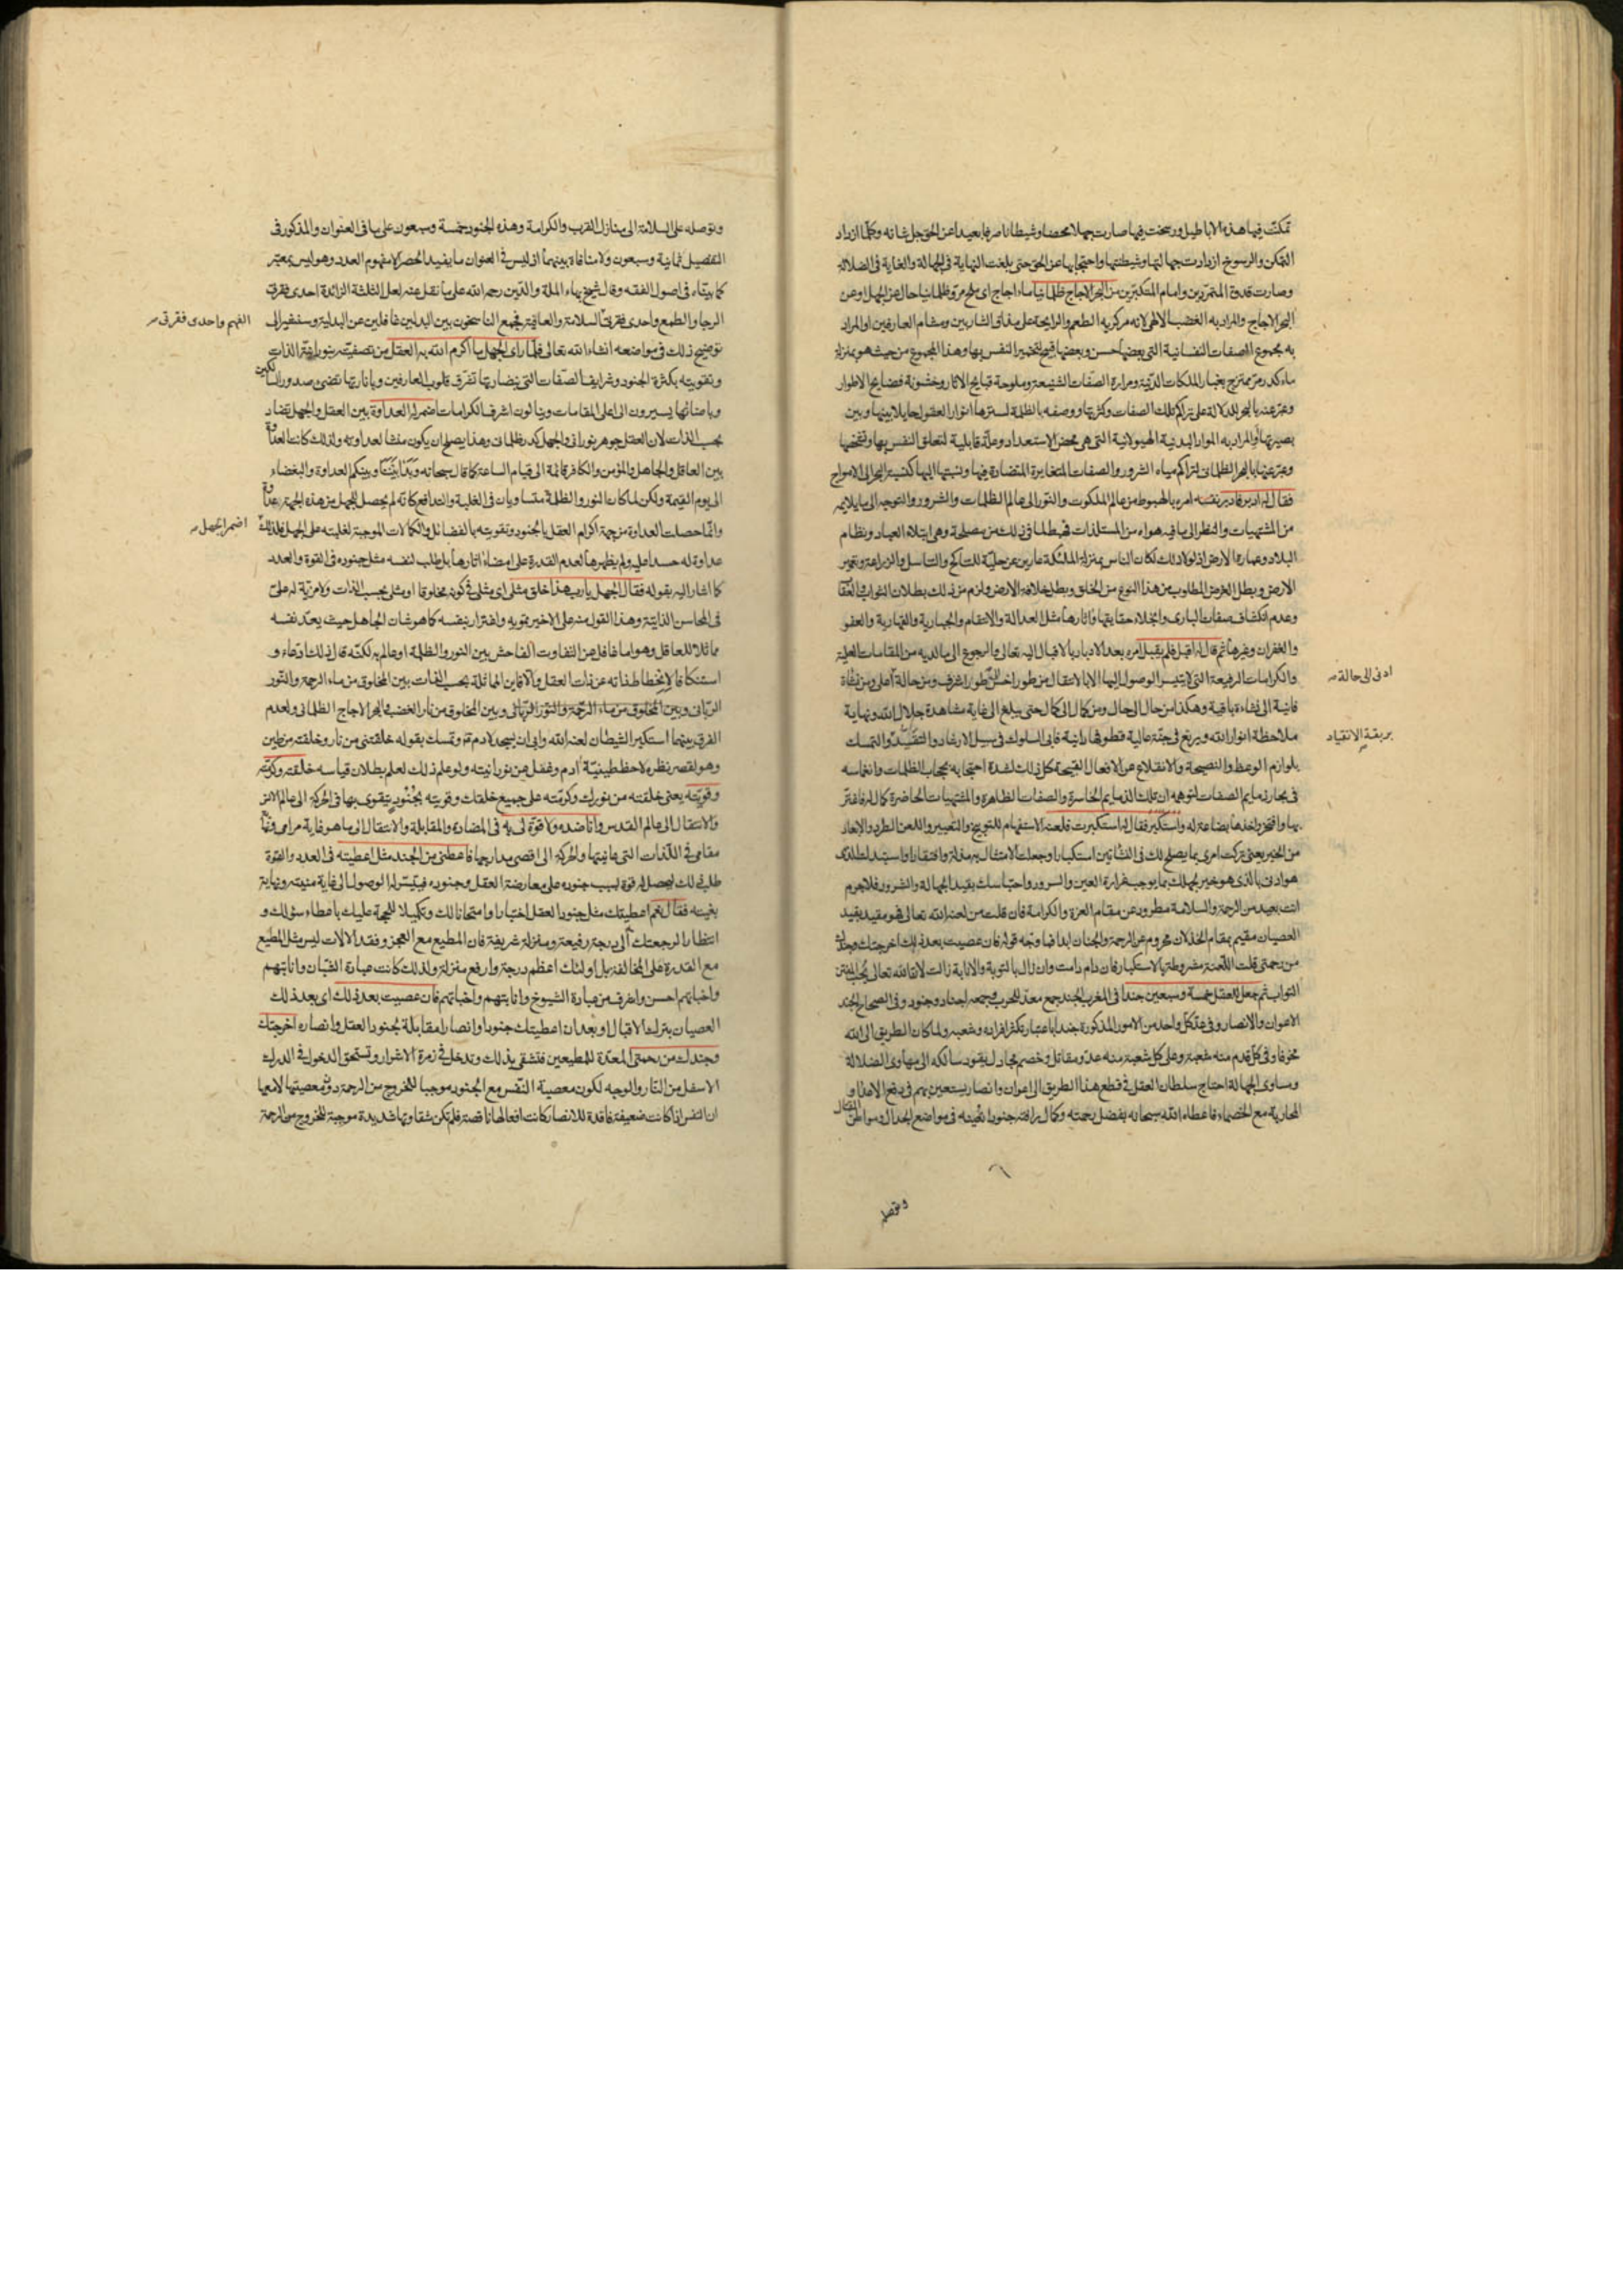 تمكنت فيها هذه الاباطيل ورسخت فيها صارت جهلا محضا وشيطانا صرفا بعيدا عن الحق جل شانه وكلما ازداد
التمكن والرسوخ ازدادت جهالتها وشيطنتها واحتجابها عن الحق حتى بلغت النهاية في الجهالة والغاية في الضلالة
وصارت قدوة المتمردين وامام المتكبرين من البحر الاجاج ظلمانيا ماء اجاج اى ملح مر وظلمانيا حال عن الجهل او عن
البحر الاجاج والمراد به الغضب الالهى لانه مركز به الطعم والرايحة على مذاق الشاربين ومشام العارفين او المراد
به مجموع الصفات النفسانية التى بعضها حسن وبعضها قبيح لتخمير النفس بها وهذا المجموع من حيث هو بمنزلة
ماء كدر مر ممتزج بغبار الملكات الدنية ومرارة الصفات الشنيعة وملوحة قبايح الاثار وخشونة فضايح الاطوار
وعبر عنه بالبحر للدلالة على تراكم تلك الصفات وكثرتها ووصفه بالظلمة لسترها انوار العقول حايلا بينها وبين
بصيرتها او المراد به المواد البدنية الهيولانية التى هى محض الاستعداد وعلة قابلية لتعلق النفس بها وتشخصها
وعبر عنها بالبحر الظلمانى لتراكم مياه الشرور والصفات المتغايرة المتضادة فيها ونسبتها اليها كنسبة البحر الى الامواج
فقال له ادبر فادبر بنفسه امره بالهبوط من عالم الملكوت والنور الى عالم الظلمات والشرور والتوجه الى ما يلايمه
من المشتهيات والنظر الى ما فيه هواه من المستلذات فهبط لما فى ذلك من مصلحة وهى ابتلاء العباد ونظام
البلاد وعمارة الارض اذ لولا ذلك لكان الناس بمنزلة الملئكة عارين عن حلية التناكح والتناسل والزراعة وتعمير
الارض وبطل الغرض المطلوب من هذا النوع من الخلق وبطل خلافة الارض ولزم من ذلك بطلان الثواب والعقاب
وعدم انكشاف صفات البارى وانجلاء حقايقها واثارها مثل العدالة والانتقام والجبارية والقهارية والعفو
والغفران وغيرها ثم قال له اقبل فلم يقبل امره بعد الادبار بالاقبال اليه تعالى والرجوع الى ما لديه من المقامات العلية
والكرامات الرفيعة التى لا يتيسر الوصول اليها الا بالانتقال من طور اخس الى طور اشرف ومن حالة اعلى ومن نشاة
ادنى الى حالة
فانية الى نشاءة باقية وهكذا من حال الى حال ومن كمال الى كمال حتى يبلغ الى غاية مشاهدة جلال الله ونهاية
ملاحظة انوار الله ويرتع فى جنة عالية قطوفها دانية فابى السلوك فى سبيل الارشاد والتقييد والتمسك
بربقة الانقياد
بلوازم الوعظ والنصيحة والانقلاع عن الافعال القبيحة كل ذلك لشدة احتجابه بحجاب الظلمات وانغماسه
فى بحار ذمايم الصفات لتوهمه ان تلك الذمايم الخاسرة والصفات الظاهرة والمشتهيات الحاضرة كمال له فاغتر
بها وافتخر واخذها بضاعة له واستكبر فقال له استكبرت فلعنه الاستفهام للتوبيخ والتعيير واللعن الطرد والابعاد
من الخير يعنى تركت امرى بما يصلح لك فى النشاتين استكبارا وجعلت الامتثال به مذلة وافتقارا واستبدلت الذى
هو ادنى بالذى هو خير بجهلك بما يوجب قرارة العين والسرور واحتباسك بقيد الجهالة والشرور فلا جرم
انت بعيد من الرحمة والسلامة مطرود عن مقام العزة والكرامة فان قلت من لعنه الله تعالى فهو مقيد بقيد
العصيان مقيم بمقام الخذلان محروم عن الرحمة والجنان ابدا فما وجه قوله فان عصيت بعد ذلك اخرجتك وجندك
من رحمتى قلت اللعنة مشروطة بالاستكبار فان دام دامت وان زال بالتوبة والانابة زالت لان الله تعالى يحب المفتن
التواب ثم جعل للعقل خمسة وسبعين جندا فى المغرب الجند جمع معد للحرب وجمعه اجناد وجنود وفى الصحاح الجند
الاعوان والانصار وفى عد كل واحد من الامور المذكورة جندا باعتبار تكثر افراده وشعبه ولما كان الطريق الى الله
مخوفا وفى كل قدم منه شعبة وعلى كل شعبة منه عدو مقاتل وخصم مجادل يقود سالكه الى مهاوى الضلالة
ومساوى الجهالة احتاج سلطان العقل فى قطع هذا الطريق الى اعوان وانصار يستعين بهم فى دفع الاعداء و
المحاربة مع الخصماء فاعطاه الله سبحانه بفضل رحمته وكمال رافته جنودا تعينه فى مواضع الجدال ومواطن القتال
وتوصله
وتوصله على السلامة الى منازل القرب والكرامة وهذه الجنود خمسة وسبعون على ما فى العنوان والمذكور فى
التفصيل ثمانية وسبعون ولا منافاة بينهما اذ ليس فى العنوان ما يفيد الحصر الا مفهوم العدد وهو ليس بمعتبر
كما بيناه فى اصول الفقه وقال شيخ بهاء الملة والدين رحمه الله على ما نقل عنه لعل الثلثة الزائدة احدى فقرتى
الرجا والطمع واحدى فقرتى السلامة والعافية فجمع الناسخون بين البدلين غافلين عن البدلية وسنشير الى
الفهم واحدى فقرتى
توضيح ذلك فى مواضعه انشاء الله تعالى فلما راى الجهل ما اكرم الله به العقل من تصفيته بنورانية الذات
وتقويته بكثرة الجنود وشرايف الصفات التى بنضارتها تشرق قلوب العارفين وباناراتها تضئ صدور السالكين
وباضائها يسيرون الى اعلى المقامات وينالون اشرف الكرامات اضمر له العداوة بين العقل والجهل تضاد
بحسب الذات لان العقل جوهر نورانى والجهل كدر ظلمانى وهذا يصلح ان يكون منشا لعداوته ولذلك كانت العداوة
بين العاقل والجاهل والمؤمن والكافر قائمة الى قيام الساعة كما قال سبحانه وبدا بيننا وبينكم العداوة والبغضاء
الى يوم القيمة ولكن لما كان النور والظلمة متساويان فى الغلبة والتدافع كانه لم يحصل للجهل من هذه الجهة عداوة
وانما حصلت العداوة من جهة اكرام العقل بالجنود وتقويته بالفضائل والكمالات الموجبة لغلبته على الجهل فلذلك
اضمر الجهل
عداوة له حسدا عليه ولم يظهرها لعدم القدرة على امضاء اثارها بل طلب لنفسه مثل جنوده فى القوة والعدد
كما اشار اليه بقوله فقال الجهل يا رب هذا خلق مثلى اى مثلى فى كونه مخلوقا او مثلى بحسب الذات ولا مزية له على
فى المحاسن الذاتية وهذا القول منه على الاخير تمويه وافترار بنفسه كما هو شان الجاهل حيث يعد نفسه
مماثلا للعاقل وهو اما غافل عن التفاوت الفاحش بين النور والظلمة او عالم به لكنه قال ذلك ادعاء و
استنكافا لانحطاط ذاته عن ذات العقل والا فاين المماثلة بحسب الذات بين المخلوق من ماء الرحمة والنور
الربانى وبين المخلوق من ماء الرحمة والنور الربانى وبين المخلوق من نار الغضب والبحر الاجاج الظلمانى ولعدم
الفرق بينهما استكبر الشيطان لعنه الله وابى ان يسجد لادم ع وتمسك بقوله خلقتنى من نار وخلقته من طين
وهو لقصر نظره لاحظ طينية آدم وغفل عن نورانيته ولو علم ذلك لعلم بطلان قياسه خلقته وكرمته
وقويته يعنى خلقته من نورك وكرمته على جميع خلقك وقويته بجنود يتقوى بها فى الحركة الى عالم الانس
والانتقال الى عالم القدس وانا ضده ولا قوة لى به فى المضادة والمقابلة والانتقال الى ما هو غاية مرامى ونهاية
مقامى فى اللذات التى عاينتها والحركة الى اقصى مدارجها فاعطنى من الجند مثل اعطيته فى العدد والقوة
طلب ذلك ليحصل له قوة بسبب جنوده على معارضة العقل وجنوده فيتيسر له الوصول الى غاية منيته ونهاية
بغيته فقال نعم اعطيتك مثل جنود العقل اختبارا وامتحانا لك وتكميلا للحجة عليك باعطاء سؤلك و
انتظارا لرجعتك الى درجة رفيعة ومنزلة شريفة فان المطيع مع العجز وفقد الالات ليس مثل المطيع
مع القدرة على المخالفة بل اولئك اعظم درجة وارفع منزلة ولذلك كانت عبادة الشبان وانابتهم
واخباتهم احسن واشرف من عبادة الشيوخ وانابتهم واخباتهم فان عصيت بعد ذلك اى بعد ذلك
العصيان بترك الاقبال او بعد ان اعطيتك جنودا وانصارا مقابلة بجنود العقل وانصاره اخرجتك
وجندك من رحمتى المعدة للمطيعين فتشقى بذلك وتدخل فى زمرة الاشرار وتستحق الدخول فى الدرك
الاسفل من النار والوجه لكون معصية النفس مع الجنود موجبا للخروج من الرحمة دون معصيتها لا معها
ان النفس اذا كانت ضعيفة فاقدة للانصار كانت افعالها ناقصة فلم تكن شقاوتها شديدة موجبة للخروج من الرحمة